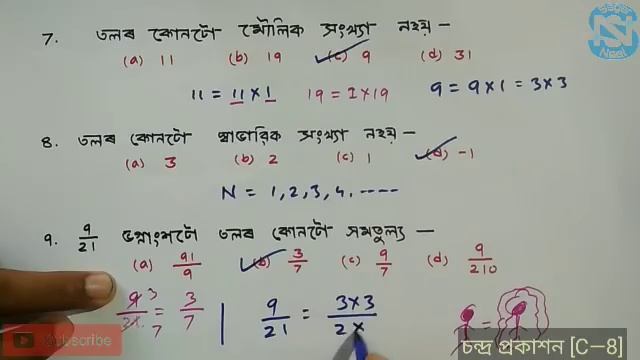 7. তলৰ কোনটো মৌলিক সংখ্যা নহয় –
(a) 11 (b) 19 (c) 9 (d) 31
11 = 11 × 1 19 = 1 × 19 9 = 9 × 1 = 3 × 3
8. তলৰ কোনটো স্বাভাৱিক সংখ্যা নহয় –
(a) 3 (b) 2 (c) 1 (d) -1
N = 1, 2, 3, 4, ----
9. 9/21 ভগ্নাংশটো তলৰ কোনটো সমতুল্য –
(a) 91/9 (b) 3/7 (c) 9/7 (d) 9/210
9 3/21 7 = 3/7 9/21 = 3×3/2×
Subscribe
চন্দ্ৰ প্ৰকাশন [C-8]